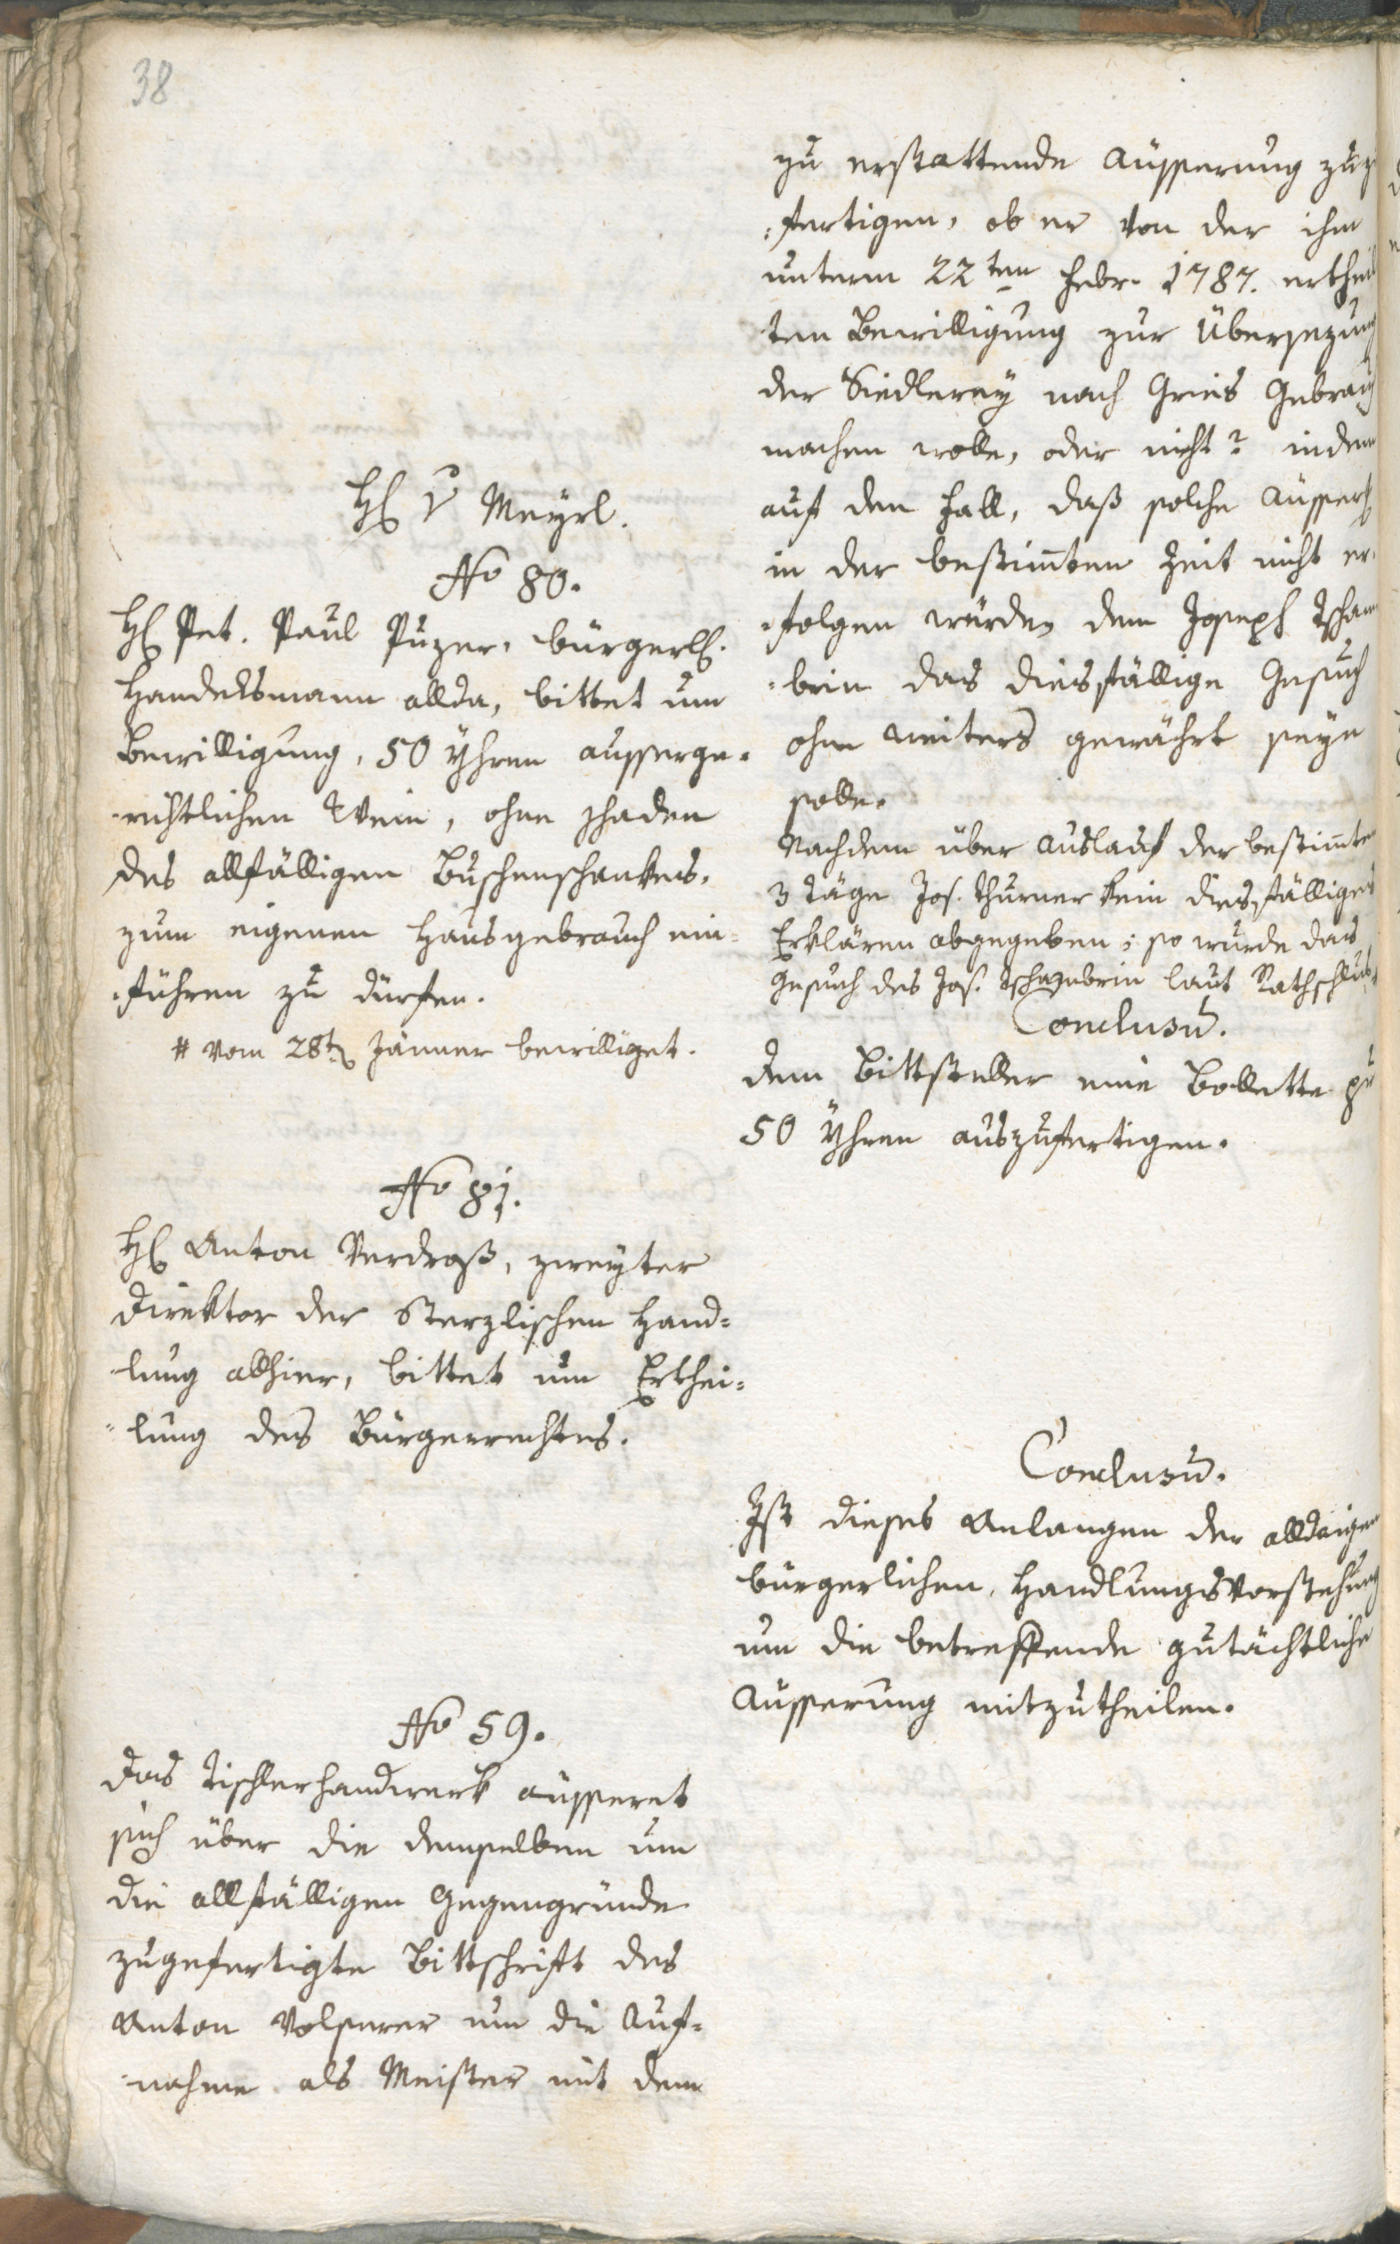 38
H: v Meyrl.
No 80.
H: Pet. Paul Puzer, bürgerl:
Handelsmann allda, bittet um
Bewilligung, 50 Yhren ausserge-
richtlichen Wein, ohne Schaden
des allfälligen Buschenschankes,
zum eigenen Hausgebrauch ein-
führen zu dürfen.
# vom 28t: Jänner bewilliget.
No 81.
H: Anton Verdroß, zweyter
Direktor der Sterzlischen Hand-
lung allhier, bittet um Erthei-
lung des Bürgerrechtes.
No 59.
Das Tischlerhandwerk äusseret
sich über die demselben um
die allfälligen Gegengründe
zugefertigte Bittschrift des
Anton Volserer um die Auf-
nahme als Meister mit dem
zu erstattende Äusserung zuzu
fertigen, ob er von der ihm
unterm 22ten Febr. 1787. erthei
ten Bewilligung zur Übersezung
der Siedlerey nach Gries Gebrauch
machen wolle, oder nicht? indem
auf den Fall, daß solche Äusser:
in der bestim̄ten Zeit nicht er-
folgen würde, dem Joseph Tscham
brin das diesfällige Gesuch
ohne weiters gewährt seyn
solle.
Nachdem über Auslauf der bestim̄ten
3 Täge Jos. Thurner kein diesfälliges
Erklären abgegeben; so wurde das
Gesuch des Jos. Tschambrin laut Rathschluß
Conclusū.
Dem Bittsteller eine Bollette zu
50 Yhren auszufertigen.
Conclusū.
Ist dieses Anlangen der alldaigen
bürgerlichen Handlungsvorstehung
um die betreffende gutächtliche
Äusserung mitzutheilen.